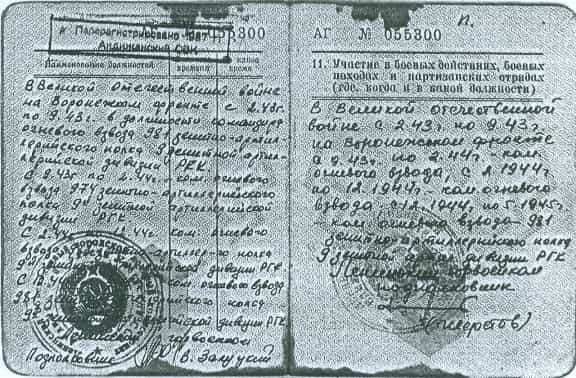 Перерегистрирован 1967
Андижанский ОВК
055300
Наименование должностей
времени
какое
время
В Великой отечественной войне
на Воронежском фронте с 2.43г.
по 9.43г. в должности командир
огневого взвода 981 зенитно-артил-
лерийского полка 9 зенитной артил-
лерийской дивизии РГК.
С 9.43г по 2.44г. - ком. огневого
взвода 974 зенитно-артиллерийского
полка 9й зенитной артиллерийской
дивизии РГК
С 12.44г. ком. огневого
взвода артиллер-го полка
дивизии РГК
ком огневого взвода
981 полка
9й дивизии РГК
горвоенком
Подполковник В. Залуцкий
П.
АГ № 055300
11. Участие в боевых действиях, боевых
походах и партизанских отрядах
(где, когда и в какой должности)
В Великой отечественной
войне с 2.43г. по 9.43г.
на Воронежском фронте
с 9.43г. по 2.44г. - ком.
огневого взвода, с 2.1944г.
по 12.1944г. - ком. огневого
взвода, с 12.1944г. по 5.1945г.
- ком. огневого взвода 981
зенитно-артиллерийского полка
9 зенитной артил. дивизии РГК
горвоенком
подполковник